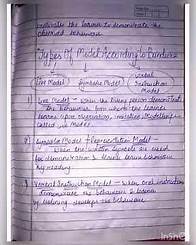 motivates the learner to demonstrate the
observed behaviour.
Types of Model According to Bandura
Live Model
Symbolic Model
Verbal
Instruction
Model
1) Live Model - When the living person demonstrate
the behaviour from whom the learner
learns upon observation, imitation, Modelling
called is Model.
2) Symbolic Model / Representation Model -
When the written symbols are used
for demonstration & learner learn behaviour
by reading
3) Verbal Instruction Model - When oral instructions
demonstrate the behaviour & learner
by listening develops the behaviour